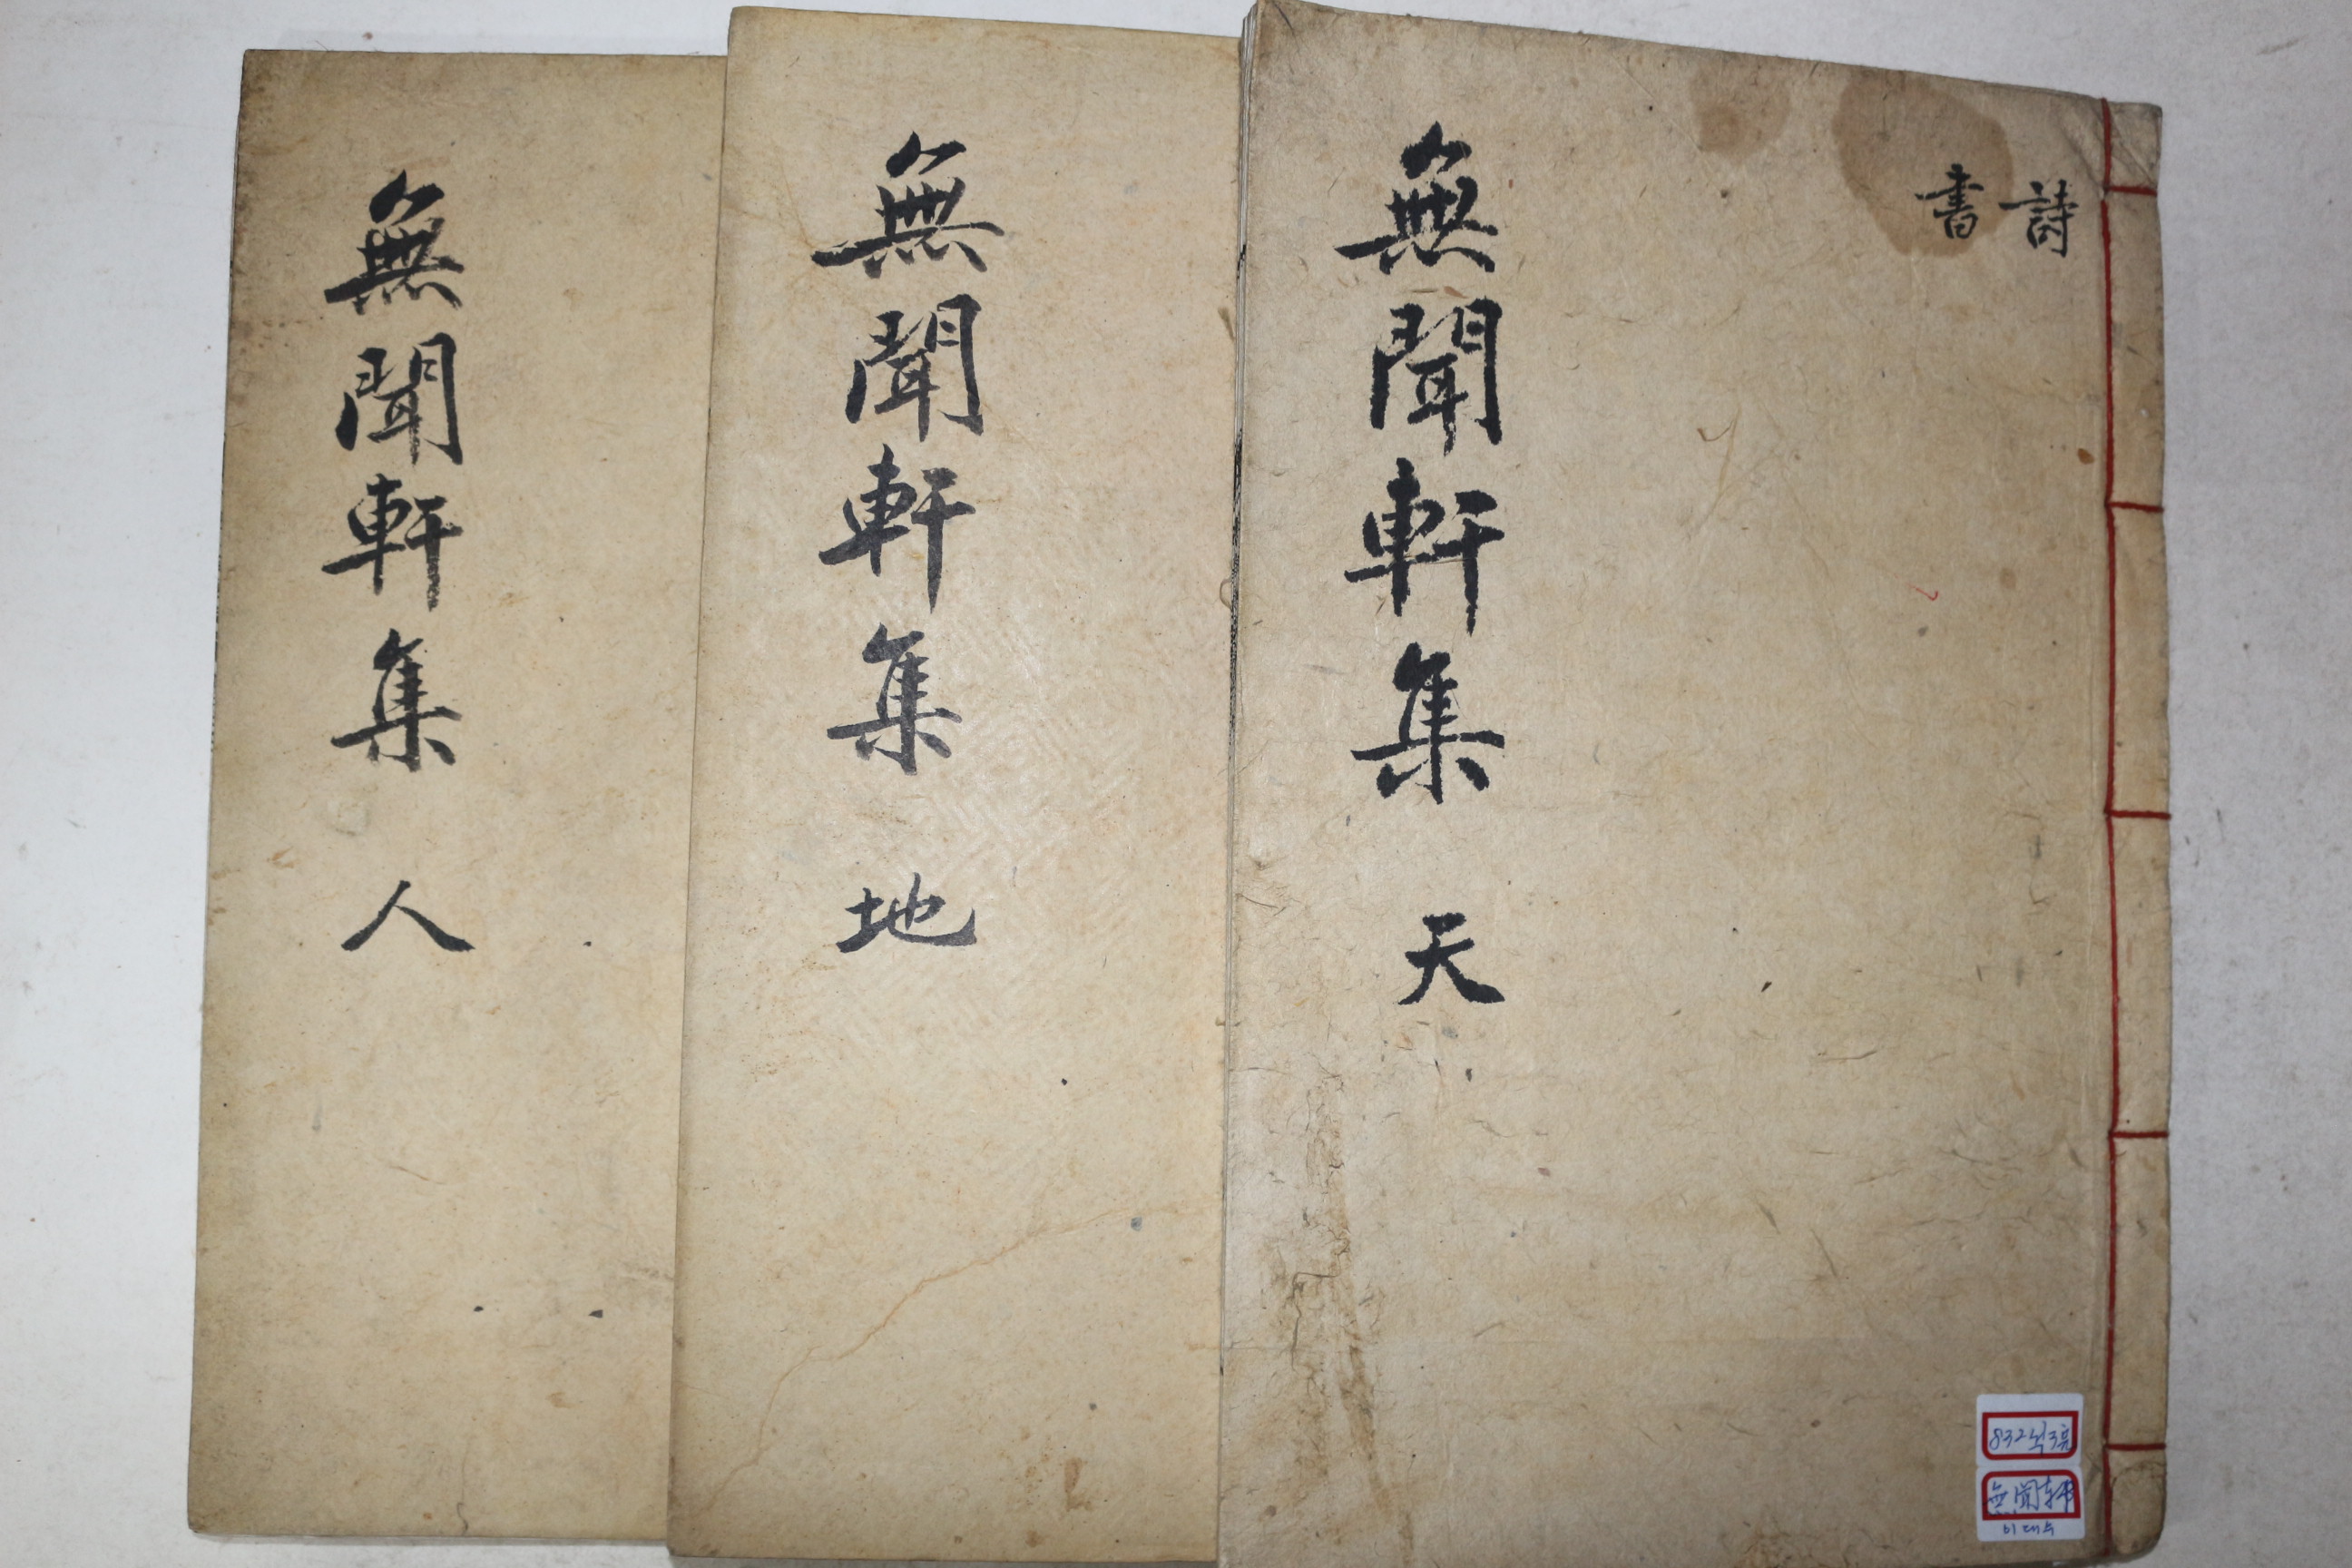 詩
書
無聞軒集 天
無聞軒集 地
無聞軒集 人
832
無聞軒